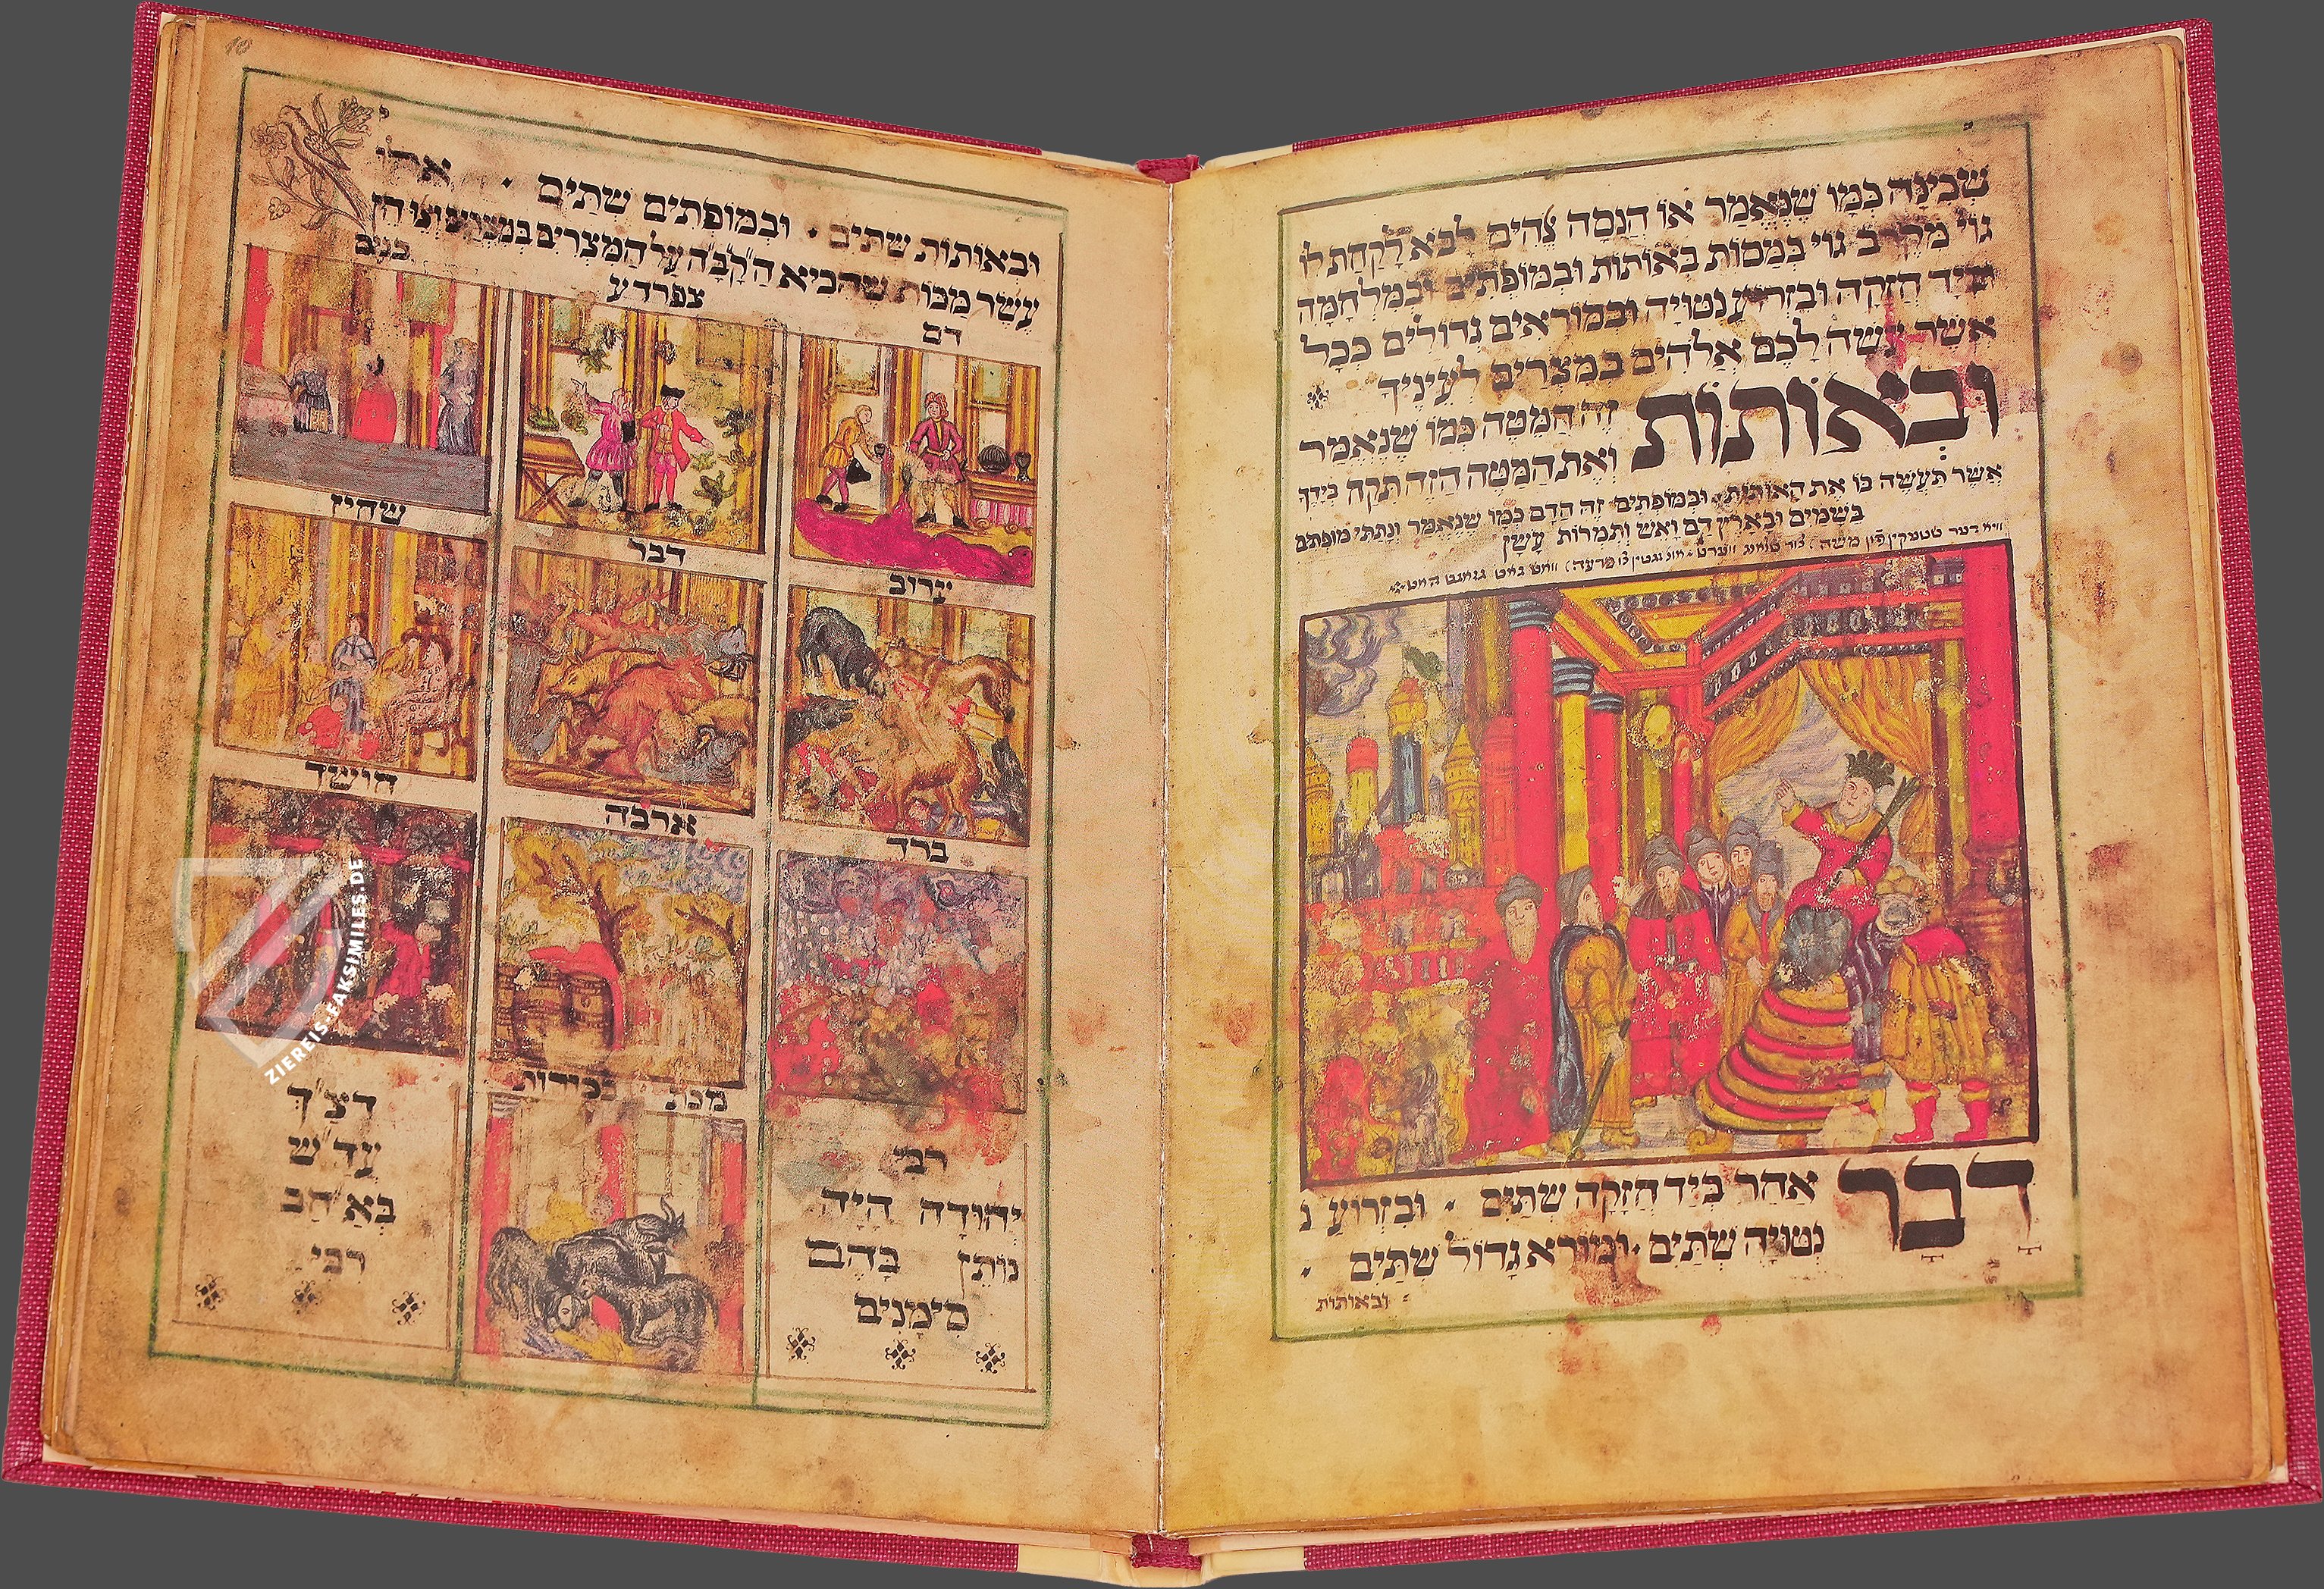 שכינה כמו שנאמר או הנסה אלהים לבא לקחת לו
גוי מקרב גוי במסות באותות ובמופתים ובמלחמה
וביד חזקה ובזרוע נטויה ובמוראים גדולים ככל
אשר עשה לכם אלהים במצרים לעיניך
ובאותות
זה המטה כמו שנאמר
ואת המטה הזה תקח בידך
אשר תעשה בו את האותות ובמופתים זה הדם כמו שנאמר ונתתי מופתים
בשמים ובארץ דם ואש ותמרות עשן
משה
פרעה
דבר
אחר ביד חזקה שתים ובזרוע נ
נטויה שתים ומורא גדול שתים
ובאותות
ובאותות שתים ובמופתים שתים אלו
עשר מכות שהביא הקבה על המצרים במצרים ואלו הן
דם
צפרדע
כנים
ערוב
דבר
שחין
ברד
ארבה
חושך
מכת בכורות
רבי
יהודה היה
נותן בהם
סימנים
דצ״ך
עד״ש
בא״חב
רבי
ZIEREIS-FAKSIMILES.DE